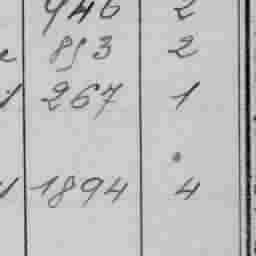 946 2
853 2
267 1
1894 4